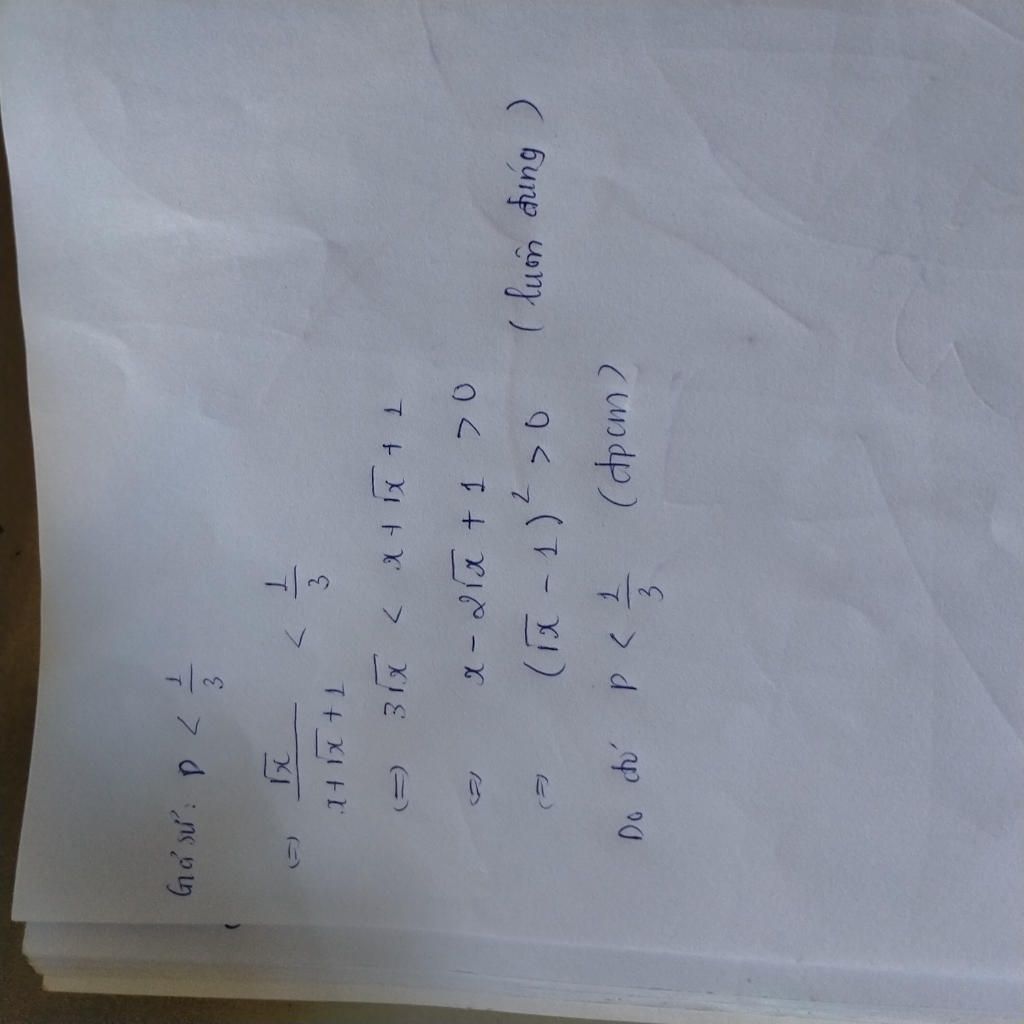 Giả sử: P < 1/3
(=) √x / (x + √x + 1) < 1/3
(=) 3√x < x + √x + 1
(=) x - 2√x + 1 > 0
(=) (√x - 1)² > 0 (luôn đúng)
Do đó P < 1/3 (đpcm)